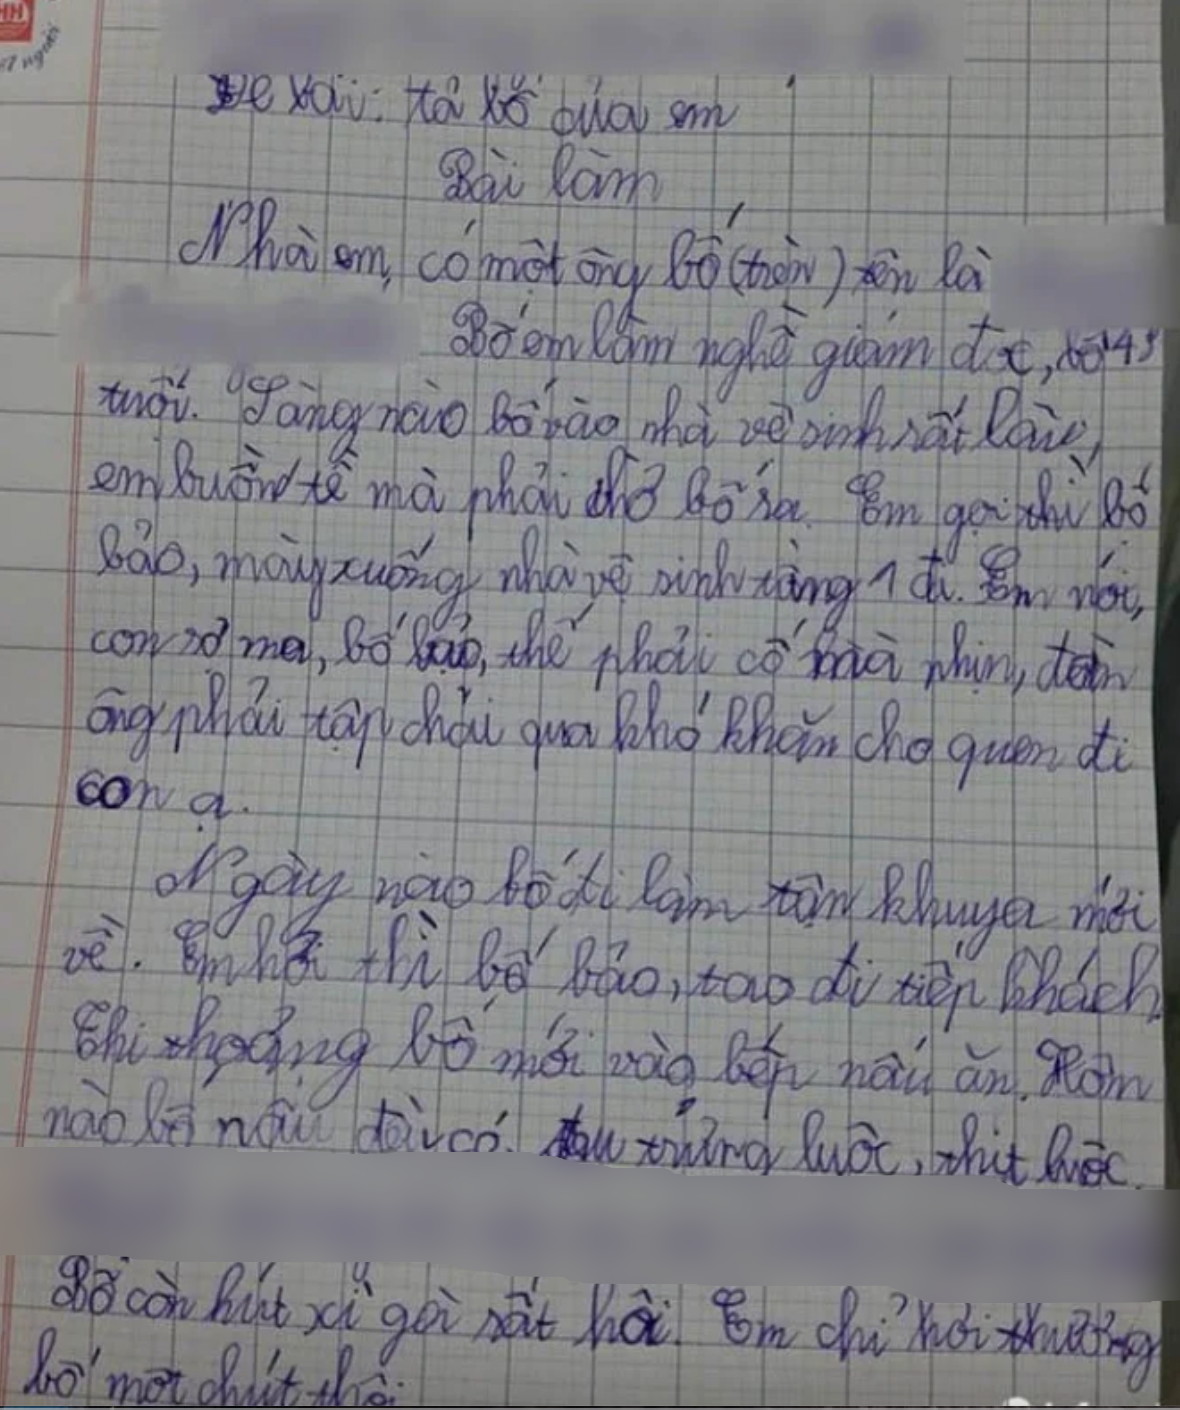 người
Đề bài: tả bố của em
Bài làm
Nhà em, có một ông bố (trên) tên là
Bố em làm nghề giám đốc, bố 43
tuổi. Sáng nào bố vào nhà vệ sinh rất lâu,
em buồn tè mà phải chờ bố ra. Em gọi thì bố
bảo, mày xuống nhà vệ sinh tầng 1 đi. Em nói,
con sợ ma, bố bảo, thế phải cố mà nhịn, đàn
ông phải tập chải qua khó khăn cho quen đi
con ạ.
Ngày nào bố đi làm tận khuya mới
về. Em hỏi thì bố bảo, tao đi tiếp khách.
Thi thoảng bố mới vào bếp nấu ăn. Hôm
nào bố nấu đều có trứng luộc, thịt luộc.
Bố còn hút xì gà rất hôi. Em chỉ hơi thương
bố một chút thôi.